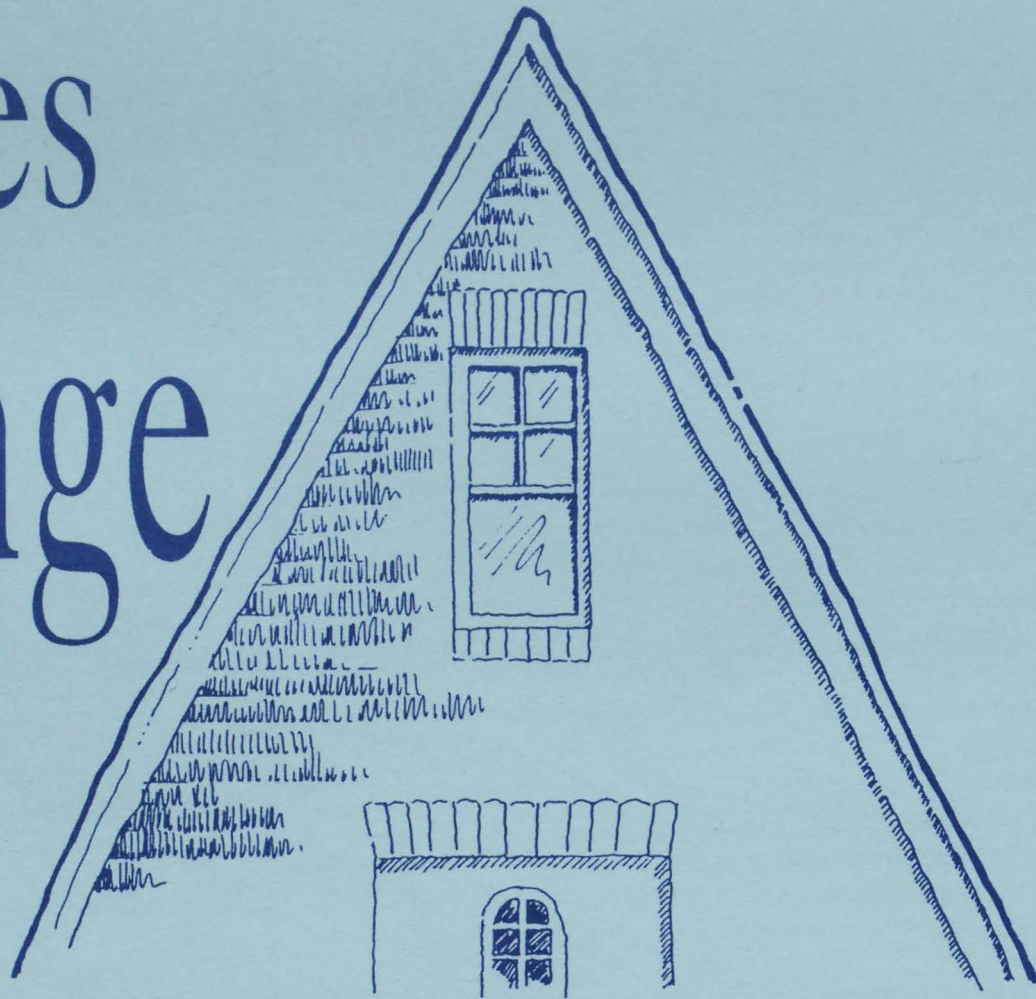 es
ge